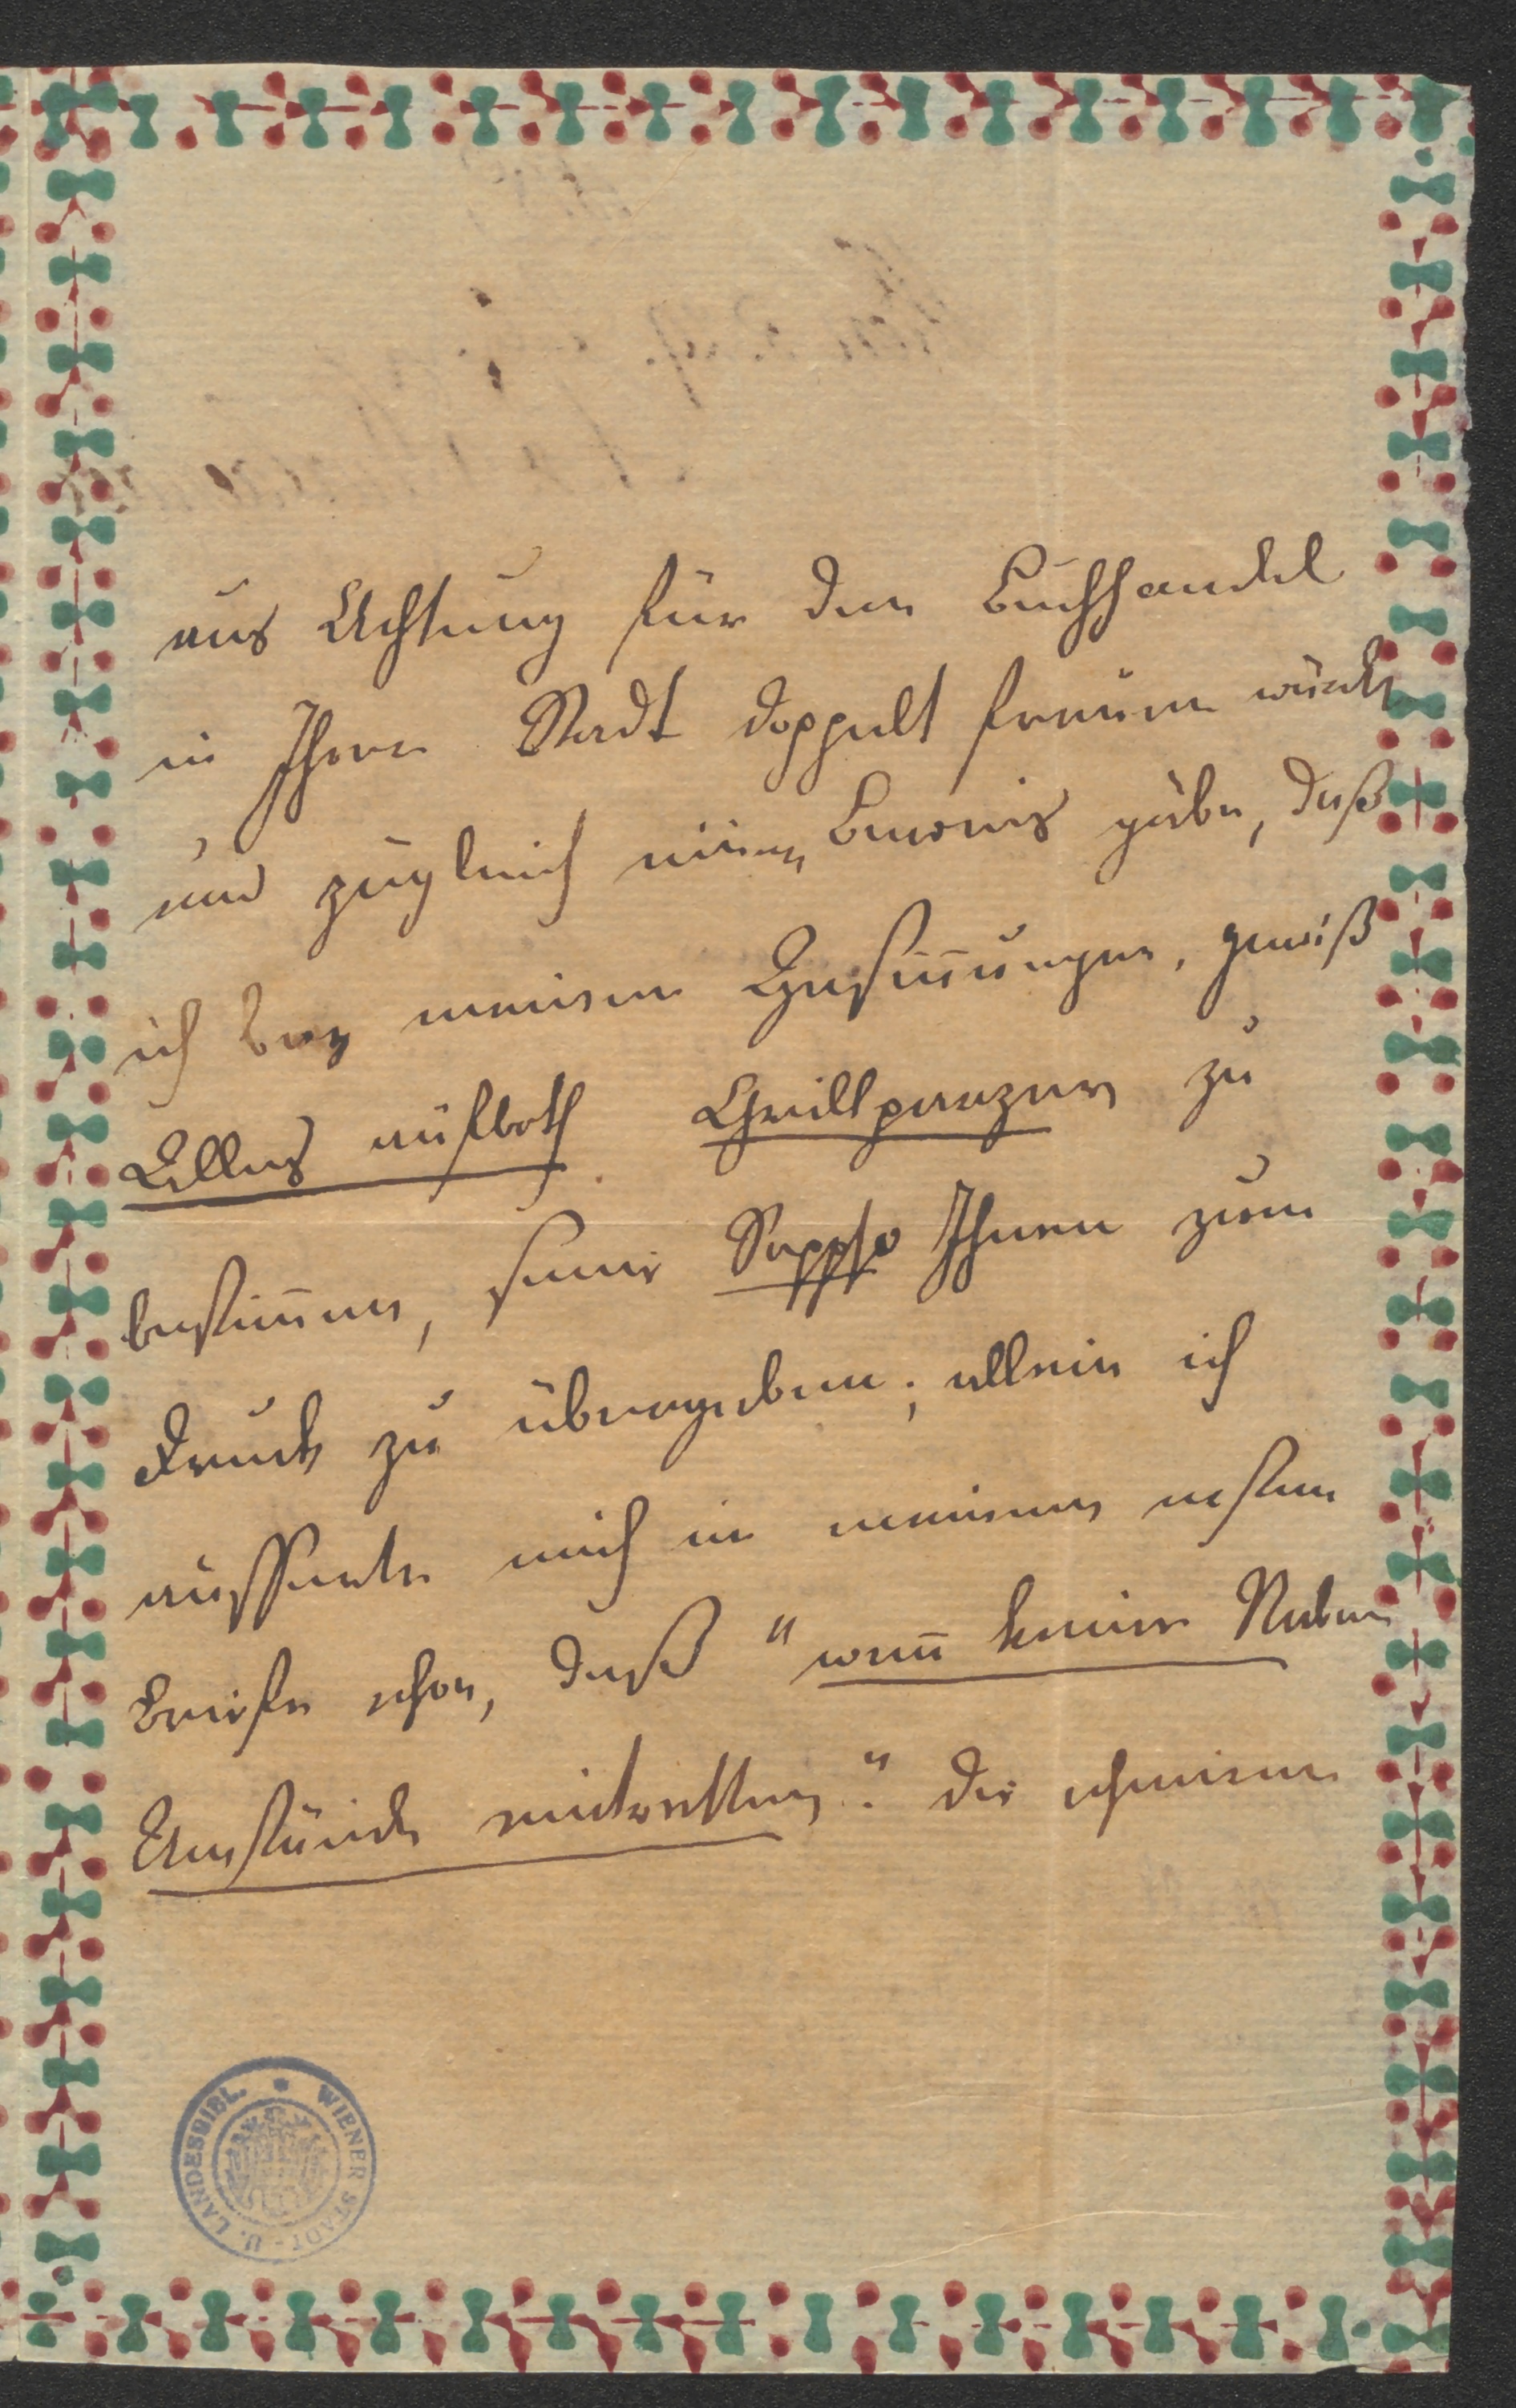 aus Achtung für den Buchhandel
in Ihrer Stadt doppelt freuen würde
und zugleich einen Beweis gäbe, daß
ich bey meinen Gesin̅ungen, gewiß
Alles aufboth Grillparzer zu
bestim̅en, seine Sappho Ihnen zum
Druck zu übergeben; allein ich
äusserte mich in meinem ersten
Briefe schon, daß "wen̅ keine Neben
Umstände eintretten". Die
WIENER STADT- U. LANDESBIBL.